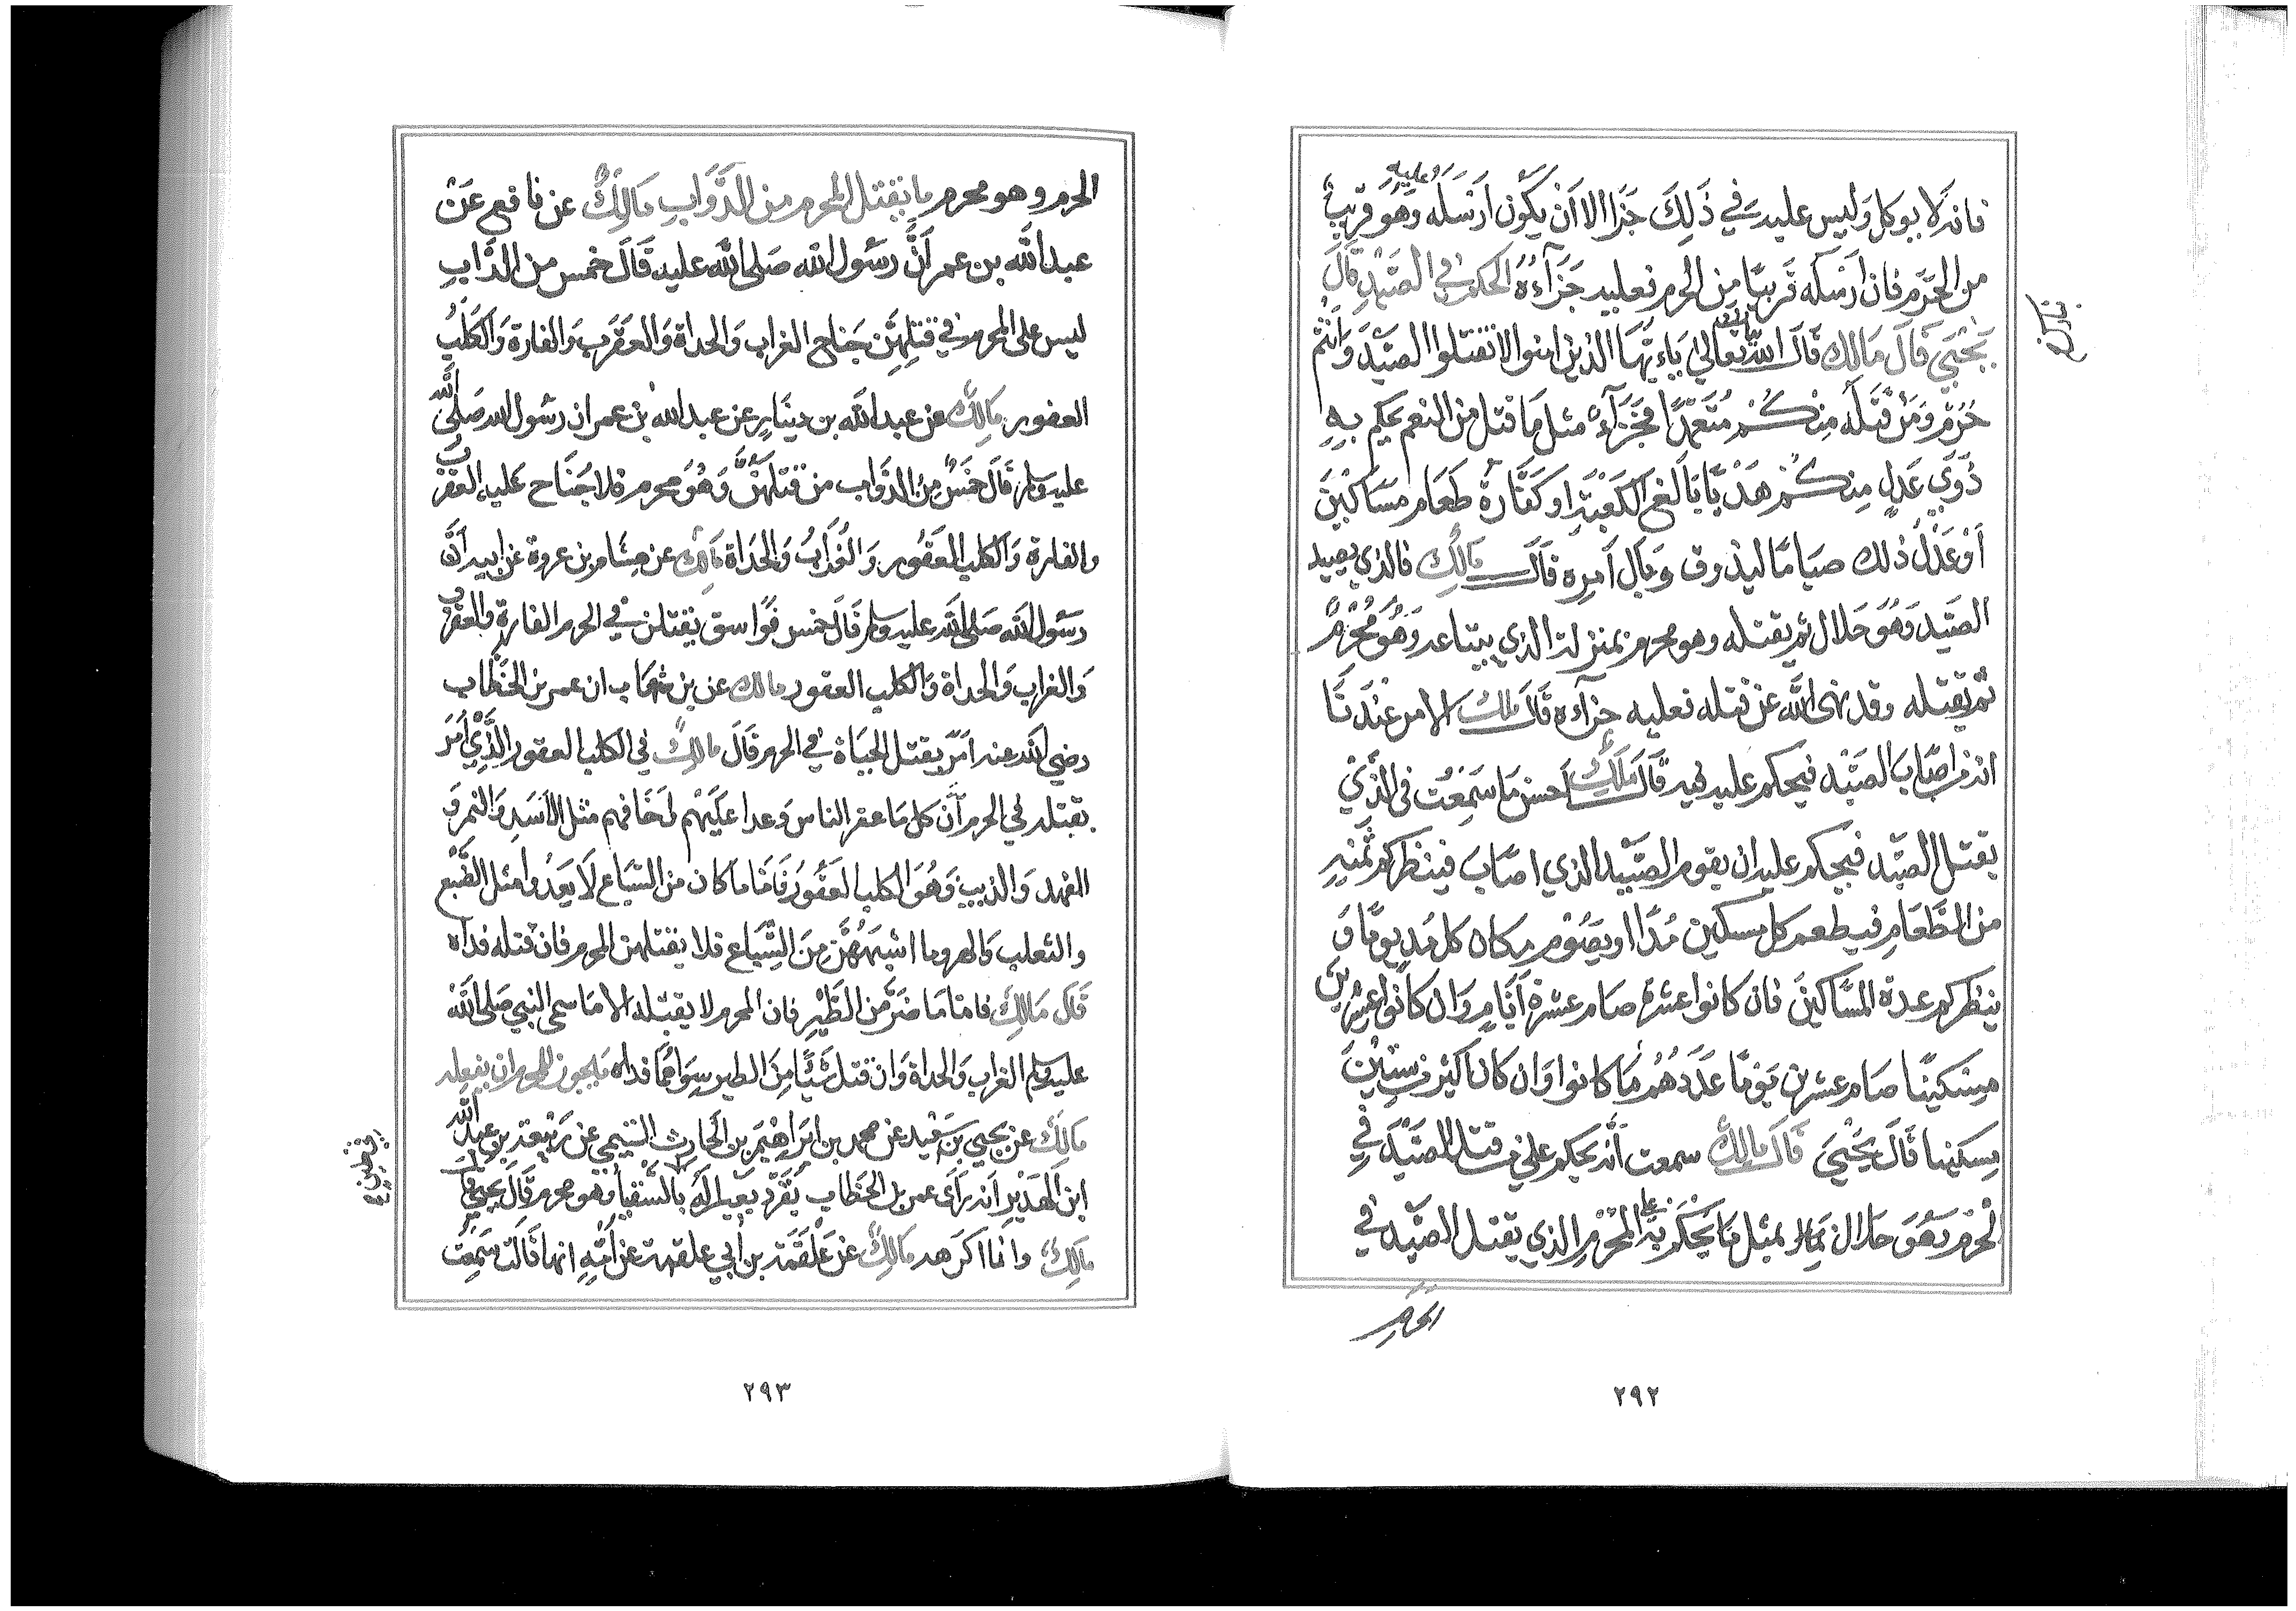 فانه لا يوكل وليس عليه في ذلك جزا الا ان يكون ارسله وهو قريب
من الحرم فان ارسله قريبا من الحرم فعليه جزآءه الحكم في الصيد قال
يحيى قال مالك قال الله تعالى ياءيها الذين امنوا لا تقتلوا الصيد وانتم
حرم ومن قتله منكم متعمدا فجزآء مثل ما قتل من النعم يحكم به
ذوي عدل منكم هديا بالغ الكعبة او كفارة طعام مساكين
او عدل ذلك صياما ليذوق وبال امره قال مالك فالذي يصيد
الصيد وهو حلال ثم يقتله وهو محرم بمنزلة الذي يبتاعه وهو محرم
ثم يقتله وقد نهى الله عن قتله فعليه جزآءه قال ملك الامر عندنا
انه من اصاب الصيد فيحكم عليه فيه قال ملك احسن ما سمعت في الذي
يقتل الصيد فيحكم عليه ان يقوم الصيد الذي اصاب فينظر كم ثمنه
من الطعام فيطعم كل مسكين مدا او يصوم مكان كل مد يوما و
ينظر كم عدة المساكين فان كانوا عشرة صام عشرة ايام وان كانوا عشرين
مسكينا صام عشرين يوما عددهم ما كانوا وان كان اكثر من ستين
مسكينا قال يحيى قال مالك سمعت انه يحكم على من قتل الصيد في
الحرم وهو حلال بمثل ما يحكم به على المحرم الذي يقتل الصيد في
الحرم
٢٩٢
الحرم وهو محرم ما يقتل المحرم من الدواب مالك عن نافع عن
عبد الله بن عمر ان رسول الله صلى الله عليه قال خمس من الداب
ليس على المحرم في قتلهن جناح الغراب والحداة والعقرب والفارة والكلب
العقور مالك عن عبد الله بن دينار عن عبد الله بن عمر ان رسول الله صلى الله
عليه وسلم قال خمس من الدواب من قتلهن وهو محرم فلا جناح عليه العقرب
والفارة والكلب العقور والغراب والحداة مالك عن هشام بن عروة عن ابيه ان
رسول الله صلى الله عليه وسلم قال خمس فواسق يقتلن في الحرم الفارة والعقرب
والغراب والحداة والكلب العقور مالك عن بن شهاب ان عمر بن الخطاب
رضي الله عنه امر بقتل الحياة في الحرم قال مالك في الكلب العقور الذي امر
بقتله في الحرم ان كل ما عقر الناس وعدا عليهم اخافهم مثل الاسد والنمر و
الفهد والذيب وهو الكلب العقور فاما ما كان من السباع لا يعدوا مثل الضبع
والثعلب والهر وما اشبههن من السباع فلا يقتلهن المحرم فان قتله فداه
قال مالك فاما ما ضر من الطير فان المحرم لا يقتله الا ما سمى النبي صلى الله
عليه وسلم الغراب والحداة وان قتل شيئا من الطير سواهما فداه ما يجوز للمحرم ان يفعله
مالك عن يحيى بن سعيد عن محمد بن ابراهيم بن الحارث التيمي عن ربيعة بن عبد الله
ابن الهدير انه راى عمر بن الخطاب يقرد بعيرا له بالسقيا وهو محرم قال يحيى قال
مالك وانا اكرهه مالك عن علقمة بن ابي علقمة عن امه انها قالت سمعت
٢٩٣